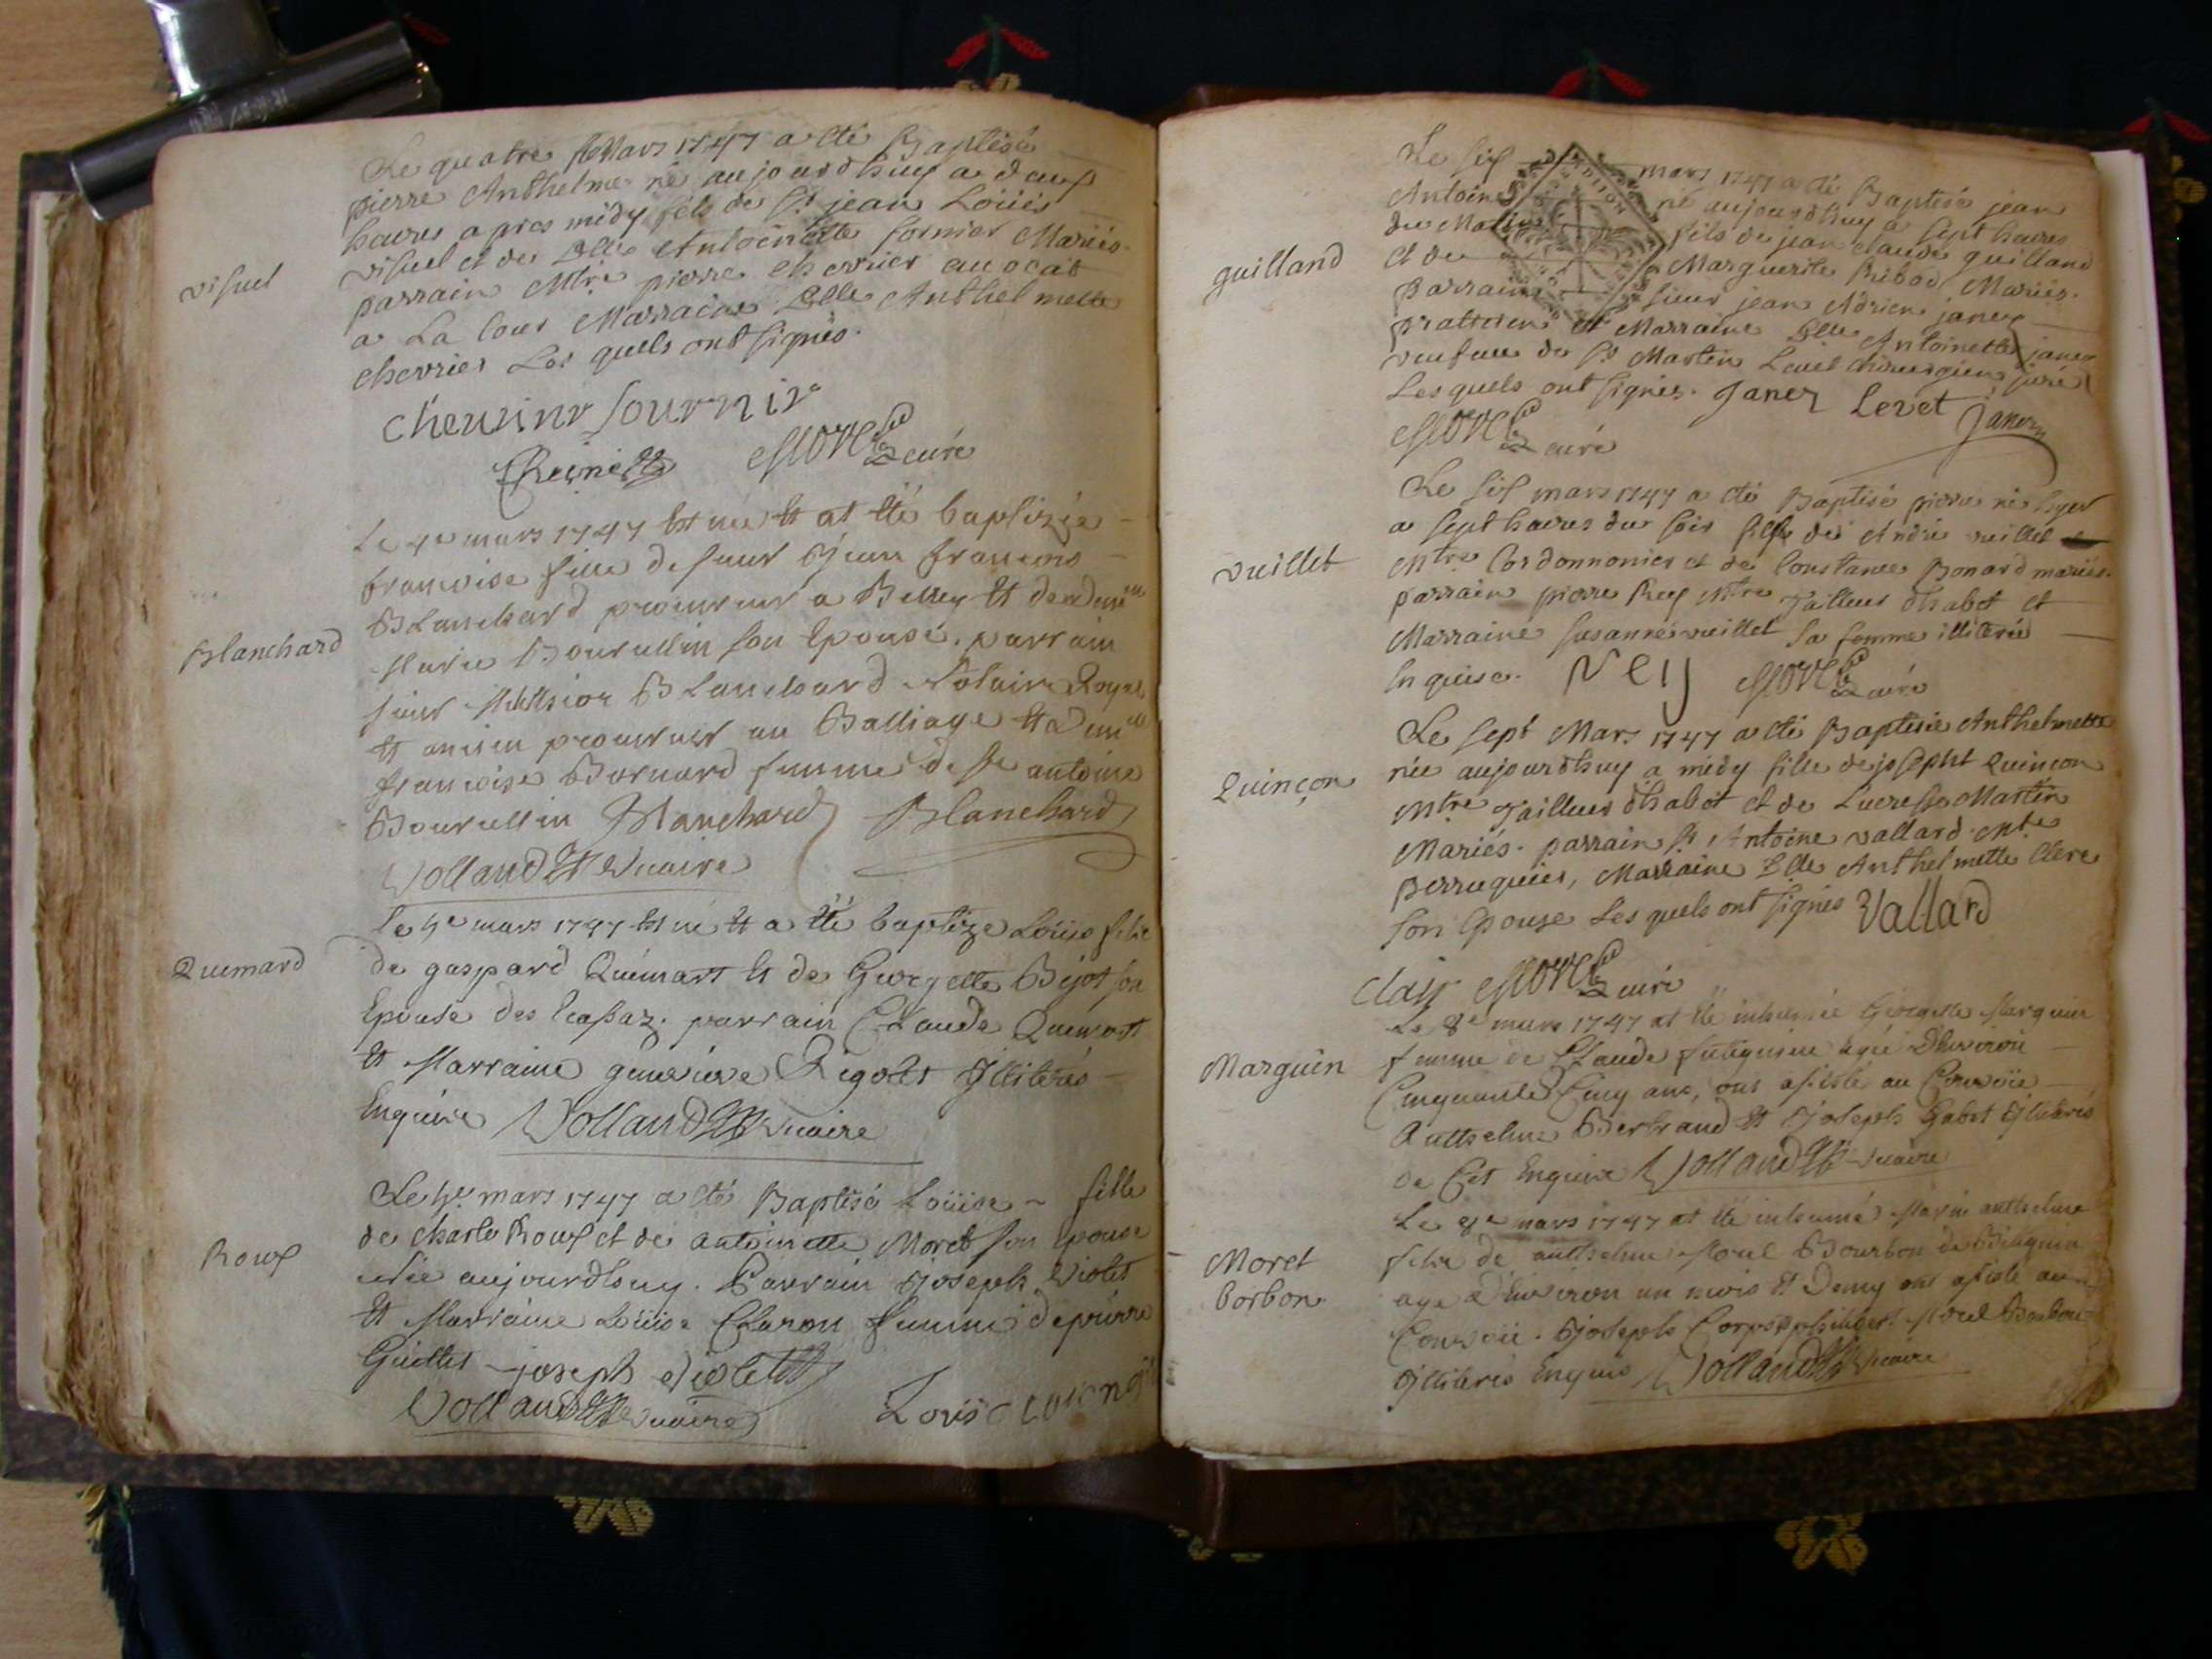 Le quatre Mars 1747 a été Baptisé
pierre Anthelme né aujourdhuy a deux
heures apres midy fils de Sr jean Loüis
visuel
Visuel et de Dlle Antoinette fornier Mariés.
parrain Mtre pierre chevrier avocat
a La Cour Marraine Dlle Anthelmette
chevrier Les quels ont signés.
fournir
Morel curé
Le 4e mars 1747 Est née Et at été baptizée
francoise fille de sieur Jean francois
Blanchard
Blanchard procureur a Belley Et de Demlle
Marie Bourullin son Epouse. parrain
sieur Blanchard Notaire Royal
Et ancien procureur au Balliage Et Demlle
francoise Burnard femme de Sr antoine
Bourullin Blanchard Blanchard
Volland vicaire
Le 4e mars 1747 Est né Et a été baptizé Loüis fils
Quemard
de gaspard Quémart Et de Georgette Béjot son
Epouse des Ecassaz. parrain Claude Quémart
Et Marraine geneuieve Rigolet Illiterés
Enquise Volland vicaire
Le 4e mars 1747 a été Baptisé Loüise fille
Roux
de charle Roux et de antoinette Moret son Epouse
née aujourdhuy. Parrain Joseph Violet
Et Marraine Loüise Charon femme de pierre
Guillet joseph violet
Volland vicaire Lovise
Le six mars 1747 a été Baptisé jean
Antoine né aujourdhuy a sept heures
du Matin fils de jean claude guilland
guilland
et de Marguerite Ribod Mariés.
Parrain sieur jean Adrien janex
praticien et Marraine Dlle Antoinette janex
veufue de Sr Martin Levet chirurgien juré
Les quels ont signés. Janex Levet Janex
Morel curé
Le six mars 1747 a été Baptisé pierre né hyer
a sept heures du soir fils de André vuillet
vuillet
Mtre Cordonnonier et de Constance Bonard mariés.
parrain pierre Rey Mtre Tailleur dhabet et
Marraine susanne vuillet sa femme illiterée
Enquise. Rey Morel curé
Le sept Mars 1747 a été Baptisée Anthelmette
née aujourdhuy a midy fille de josepht Quinçon
Quinçon
Mtre Tailleur dhabit et de Lucresse Martin
Mariés. parrain Sr Antoine vallard Mtre
perruquier, Marraine Dlle Anthelmette Clere
son Epouse Les quels ont signés Vallard
clair Morel curé
Le 8e mars 1747 at été inhumée Georgette Marguin
Marguin
femme de Claude agée Dhuviron
Cinquante Cinq ans, ont assisté au Convoïe
Anthelme Bertrand Et Joseph Gabet Illiterés
de Ces Enquise Volland vicaire
Le 8e mars 1747 at été inhumé Marin anthelme
Moret
borbon
fils de anthelme Morel Bourbon de
agé Dhuviron un mois Et Demy ont assisté au
Convoïe. Joseph Corps Morel Bourbon
Illiterés Enquis Volland vicaire